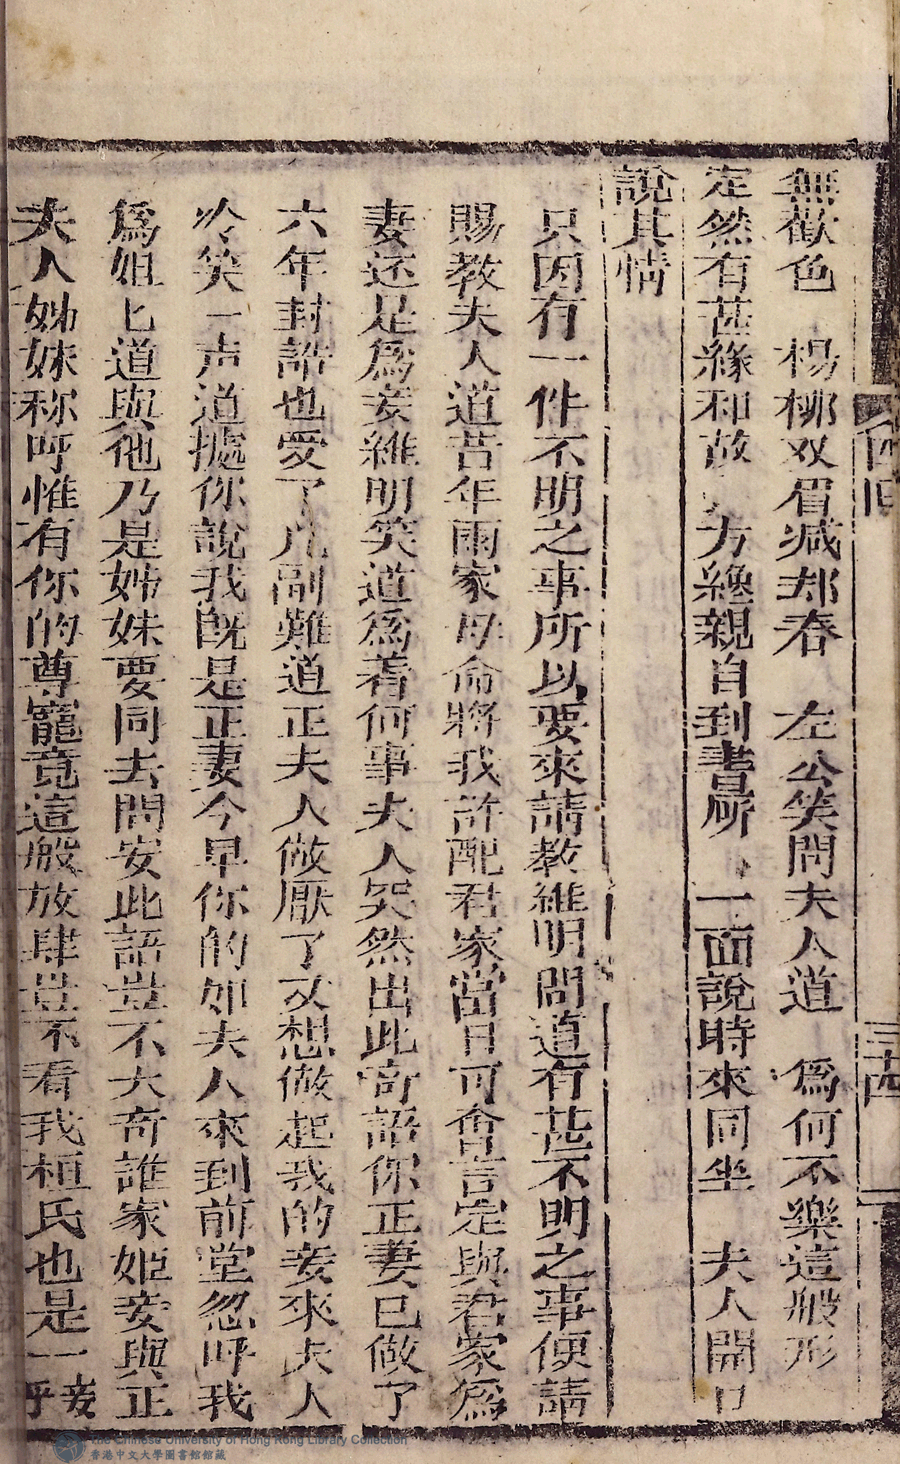 無歡色　楊柳双眉减却春　左公笑問夫人道　爲何不樂這般形
定然有甚緣和故　方纔親自到書所　一面說時來同坐　夫人開口
說其情
只因有一件不明之事所以要來請教維明問道有甚不明之事便請
賜教夫人道昔年兩家母命將我許配君家當日可曾言定與君家爲
妻还是爲妾維明笑道爲着何事夫人突然出此奇語你正妻已做了
六年封誥也愛了几副難道正夫人做厭了又想做起我的妾來夫人
冷笑一声道據你說我既是正妻今早你的如夫人來到前堂忽呼我
爲姐匕道與他乃是姊妹要同去問安此語豈不大奇誰家姬妾與正
夫人姊妹称呼惟有你的尊寵竟這般放肆豈不看我桓氏也是一妾乎
四囘
三十四
The Chinese University of Hong Kong Library Collection
香港中文大學圖書館館藏